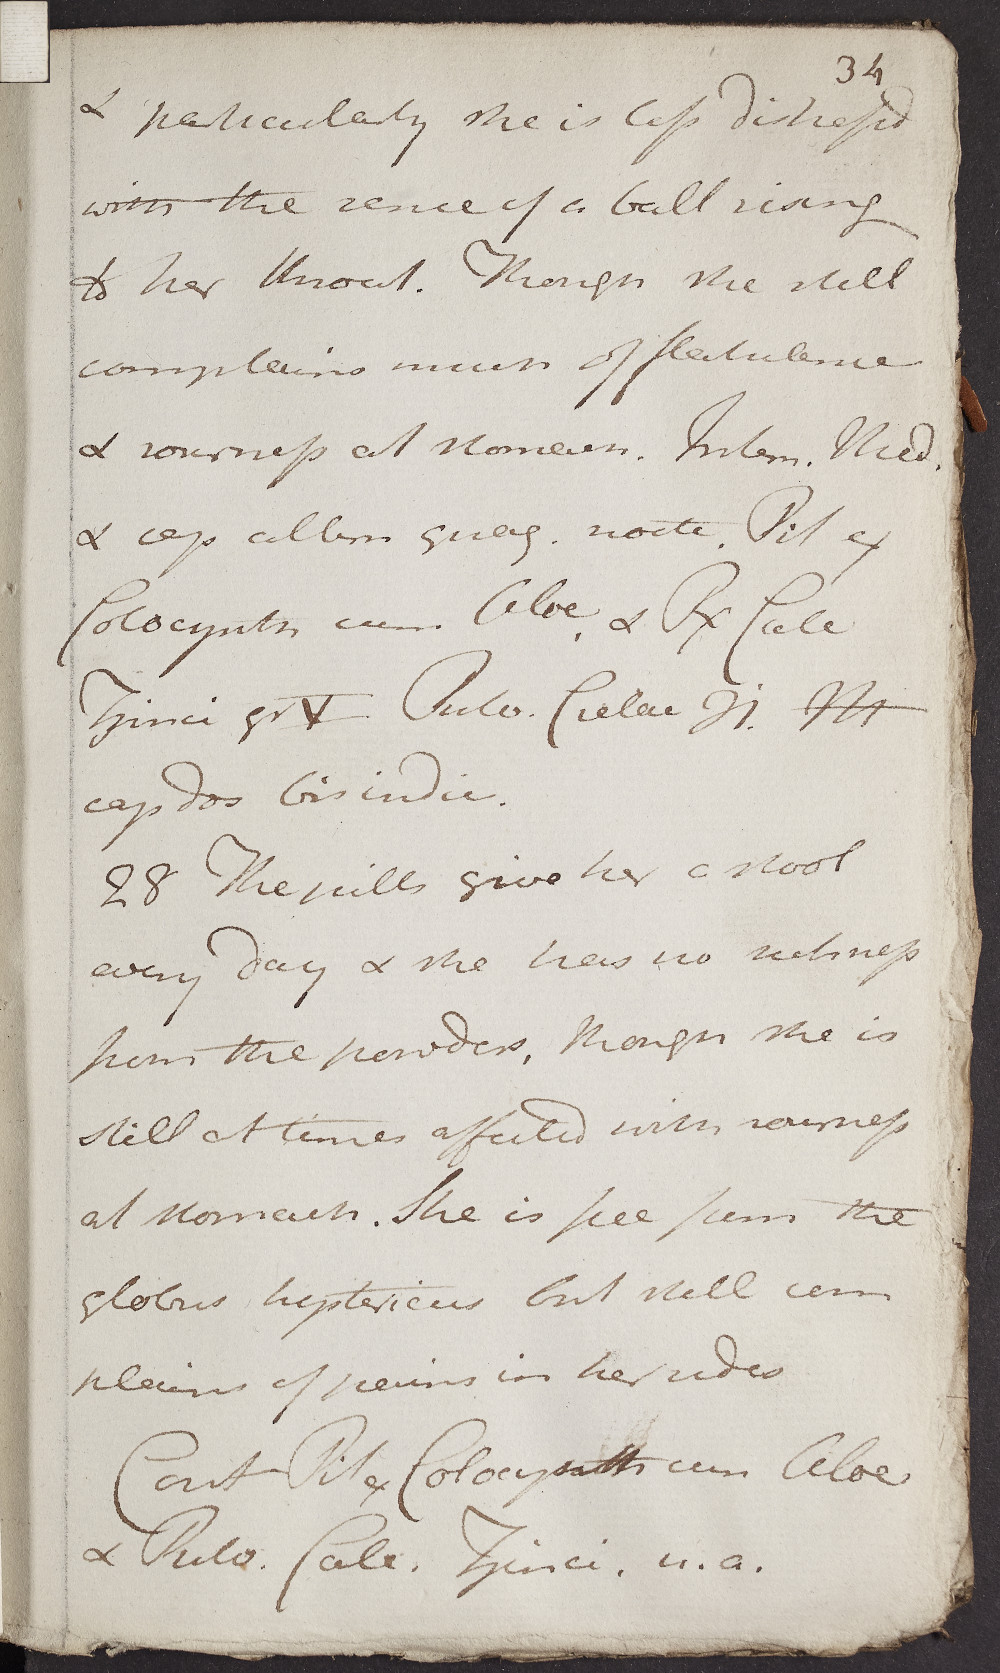 34
& particularly she is less distressd
with the sence of a ball rising
to her throat. Though she still
complains much of flatulence
& sourness at stomach. Interm. Med.
& cap alborn quaq. nocte. Pil ex
Colocynth cum Aloe. & Rx Calc
Zinci gr V Pulv. Cretae ℈j. M
cap dos bis indie.
28 The pills give her a stool
every day & she has no sickness
from the powders, though she is
still at times affected with sourness
at stomach. She is free from the
globus hystericus but still com
plains of pains in her sides
Cont Pil ex Colocynth cum Aloe
& Pulv. Calc. Zinci. u.a.